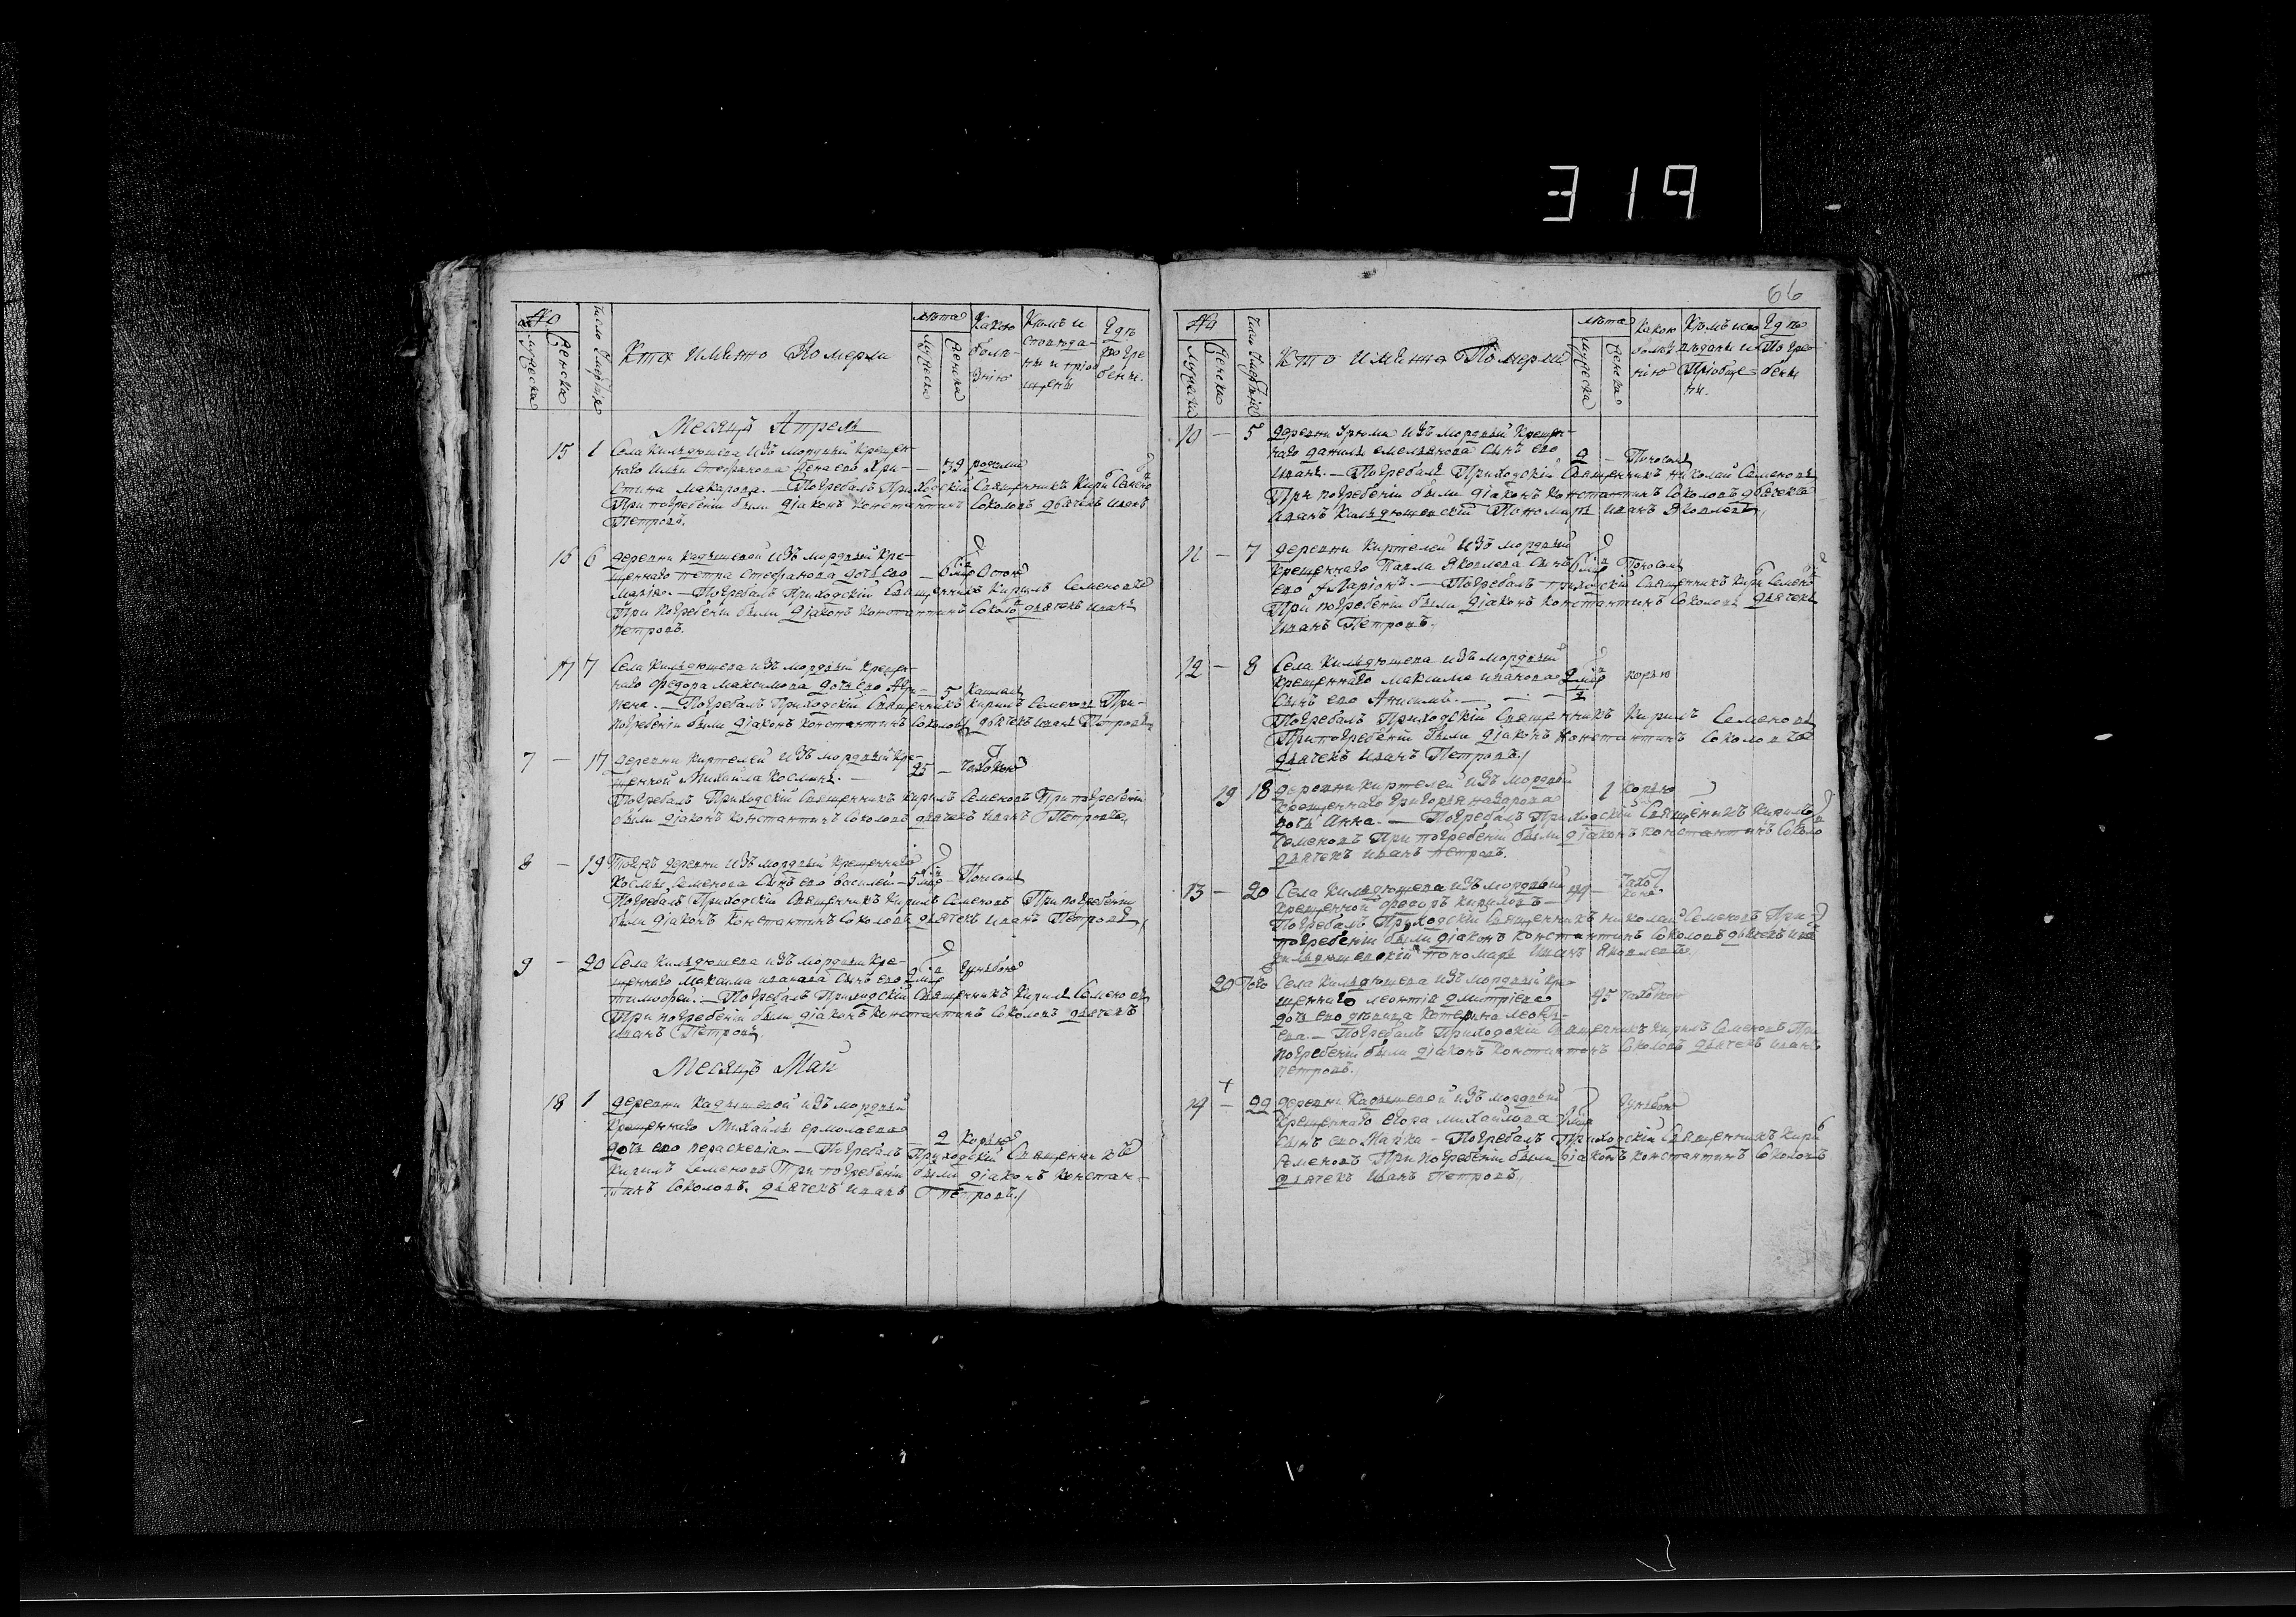 319
66
No
мужеска
женска
число умершихъ
Кто имянно Померли
лѣта
мужеска
женска
Какою
болѣ-
знiю
Кѣмъ и
споведа-
ны и прiоб
щены
Гдѣ
Погре
бены.
Месяцъ Апрель
15 1 Села Кильдюшева изъ мордвы крещен-
наго Ильи Стефанова жена ево Хри- — 39 родами
стина Макарова. — Погребалъ Приходскiй Священникъ Кирилъ Семено
При погребенiи были дiаконъ Константинъ Соколовъ дьячекъ Иванъ
Петровъ.
16 6 деревни Кадышевой изъ мордвы кре-
щеннаго Петра Стефанова дочь ево — 6 Оспою
Марiя. — Погребалъ Приходскiй Священникъ Кирилъ Семеновъ
При погребенiи были дiаконъ Константинъ Соколовъ дьячекъ Иванъ
Петровъ.
17 7 Села Кильдюшева изъ мордвы крещен-
наго Федора Максимова дочь ево Агри- — 5 кашлемъ
пена. — Погребалъ Приходскiй Священникъ Кирилъ Семеновъ При-
погребенiи были дiаконъ Константинъ Соколовъ дьячекъ Иванъ Петровъ
7 — 17 деревни Киртелей изъ мордвы кре-
щенной Михайла Косминъ. — 25 — чахоткою
Погребалъ Приходскiй Священникъ Кирилъ Семеновъ При погребенiи
были дiаконъ Константинъ Соколовъ дьячекъ Иванъ Петровъ
8 — 19 Тоежъ деревни изъ мордвы крещеннаго
Космы Семенова сынъ ево Василей — 5 — Поносомъ
Погребалъ Приходскiй Священникъ Кирилъ Семеновъ При погребенiи
были дiаконъ Константинъ Соколовъ дьячекъ Иванъ Петровъ
9 — 20 Села Кильдюшева изъ мордвы кре-
щеннаго Максима Иванова сынъ ево 2
Тимофей. — Погребалъ Приходскiй Священникъ Кирилъ Семеновъ
При погребенiи были дiаконъ Константинъ Соколовъ дьячекъ
Иванъ Петровъ
Месяцъ Май
18 1 деревни Кадышевой изъ мордвы
крещеннаго Михайлы Ермолаева
дочь ево Параскевiя — Погребалъ 2 Корью Приходскiй Священникъ
Кирилъ Семеновъ При погребенiи были дiаконъ Констан-
тинъ Соколовъ. дьячекъ Иванъ Петровъ
No
мужеска
женска
число умершихъ
Кто имянно Померли
лѣта
мужеска
женска
Какою
болѣз
нiю
Кѣмъ испо
вѣданы и
Прiобще
ны.
Гдѣ
Погре-
бены
10 — 5 деревни Урюма изъ мордвы крещен-
наго Данилы Емельянова сынъ ево 2 — Поносомъ
Иванъ. — Погребалъ Приходскiй Священникъ Николай Семеновъ
При погребенiи были дiаконъ Константинъ Соколовъ дьячекъ
Иванъ Кильдюшевскiй Пономарь Иванъ Яковлевъ
11 — 7 деревни Киртелей изъ мордвы
крещеннаго Павла Яковлева сынъ 6 Поносомъ
ево Ларiонъ. — Погребалъ приходскiй Священникъ Кирилъ Семено
При погребенiи были дiаконъ Константинъ Соколовъ дьячекъ
Иванъ Петровъ.
12 — 8 Села Кильдюшева изъ мордвы
крещеннаго Максима Иванова 2 корью
сынъ ево Анисимъ. —
Погребалъ Приходскiй Священникъ Кирилъ Семеновъ
При погребенiи были дiаконъ Константинъ Соколовъ
дьячекъ Иванъ Петровъ
19 18 деревни Киртелей изъ мордвы 1 корью
крещеннаго Григорья Назарова
дочь Анна. — Погребалъ Приходскiй Священникъ Кирилъ
Семеновъ При погребенiи были дiаконъ Константинъ Соколо
дьячекъ Иванъ Петровъ.
13 — 20 Села Кильдюшева изъ мордвы
крещенной Федоръ Кириловъ —
Погребалъ Приходскiй Священникъ Николай Семеновъ При-
погребенiи были дiаконъ Константинъ Соколовъ дьячекъ
Кильдюшевскiй пономарь Иванъ Яковлевъ
20 Того Села Кильдюшева изъ мордвы кре-
щеннаго Леонтiя Дмитрiева 45 чахоткою
дочь ево девица Катерина
Погребалъ Приходскiй Священникъ Кирилъ Семеновъ При
погребенiи были дiаконъ Константинъ Соколовъ дьячекъ Иванъ
Петровъ.
14 — 22 деревни Кадышевой изъ мордвы
крещеннаго Егора Михайлова
сынъ ево Марка — Погребалъ Приходскiй Священникъ Кири
Семеновъ При погребенiи были дiаконъ Константинъ Соколовъ
дьячекъ Иванъ Петровъ